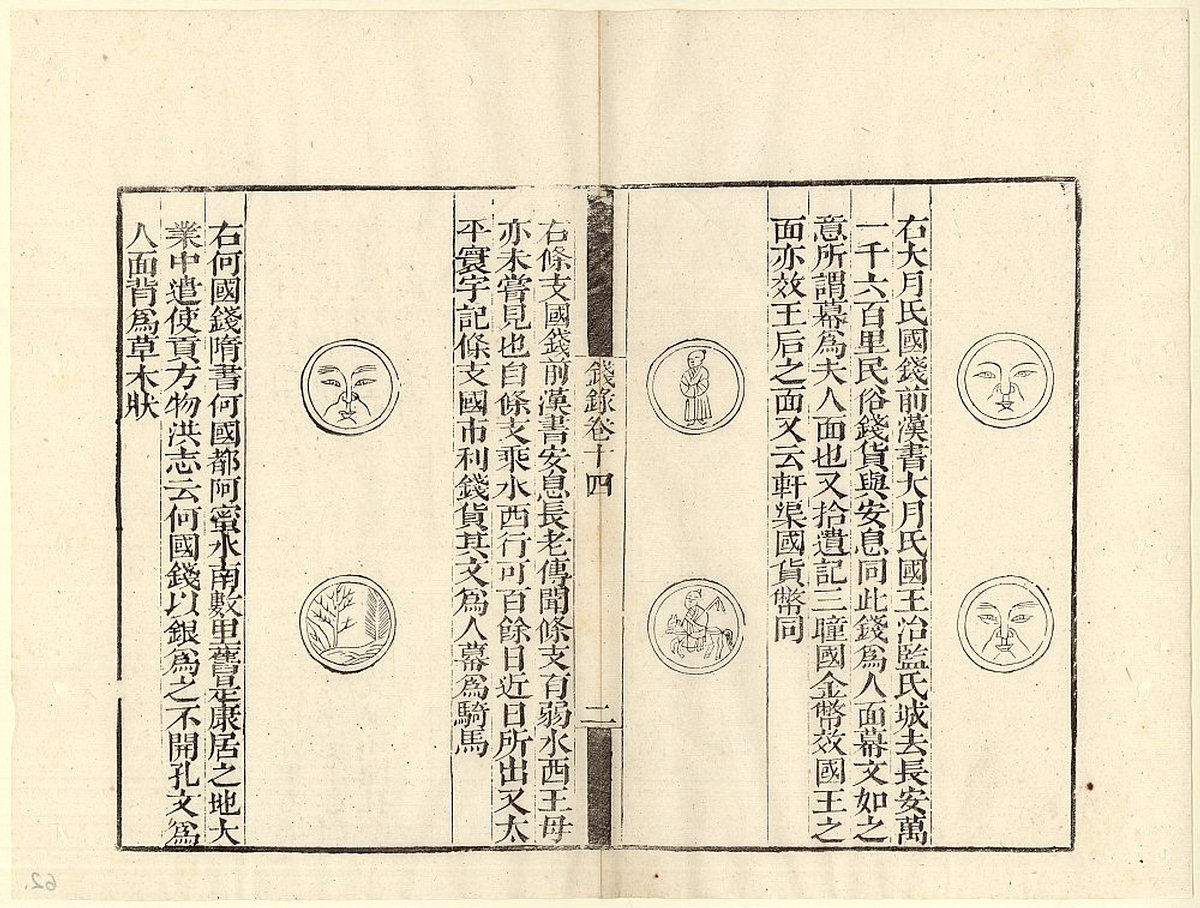 右大月氏國錢前漢書大月氏國王治監氏城去長安萬
一千六百里民俗錢貨與安息同此錢為人面幕文如之
意所謂幕為夫人面也又拾遺記三瞳國金幣效國王之
面亦效王后之面又云軒渠國貨幣同
錢錄卷十四
二
右條支國錢前漢書安息長老傳聞條支有弱水西王母
亦未嘗見也自條支乘水西行可百餘日近日所出又太
平寰宇記條支國市利錢貨其文為人幕為騎馬
右何國錢隋書何國都那蜜水南數里舊是康居之地大
業中遣使貢方物洪志云何國錢以銀為之不開孔文為
人面背為草木狀
62.